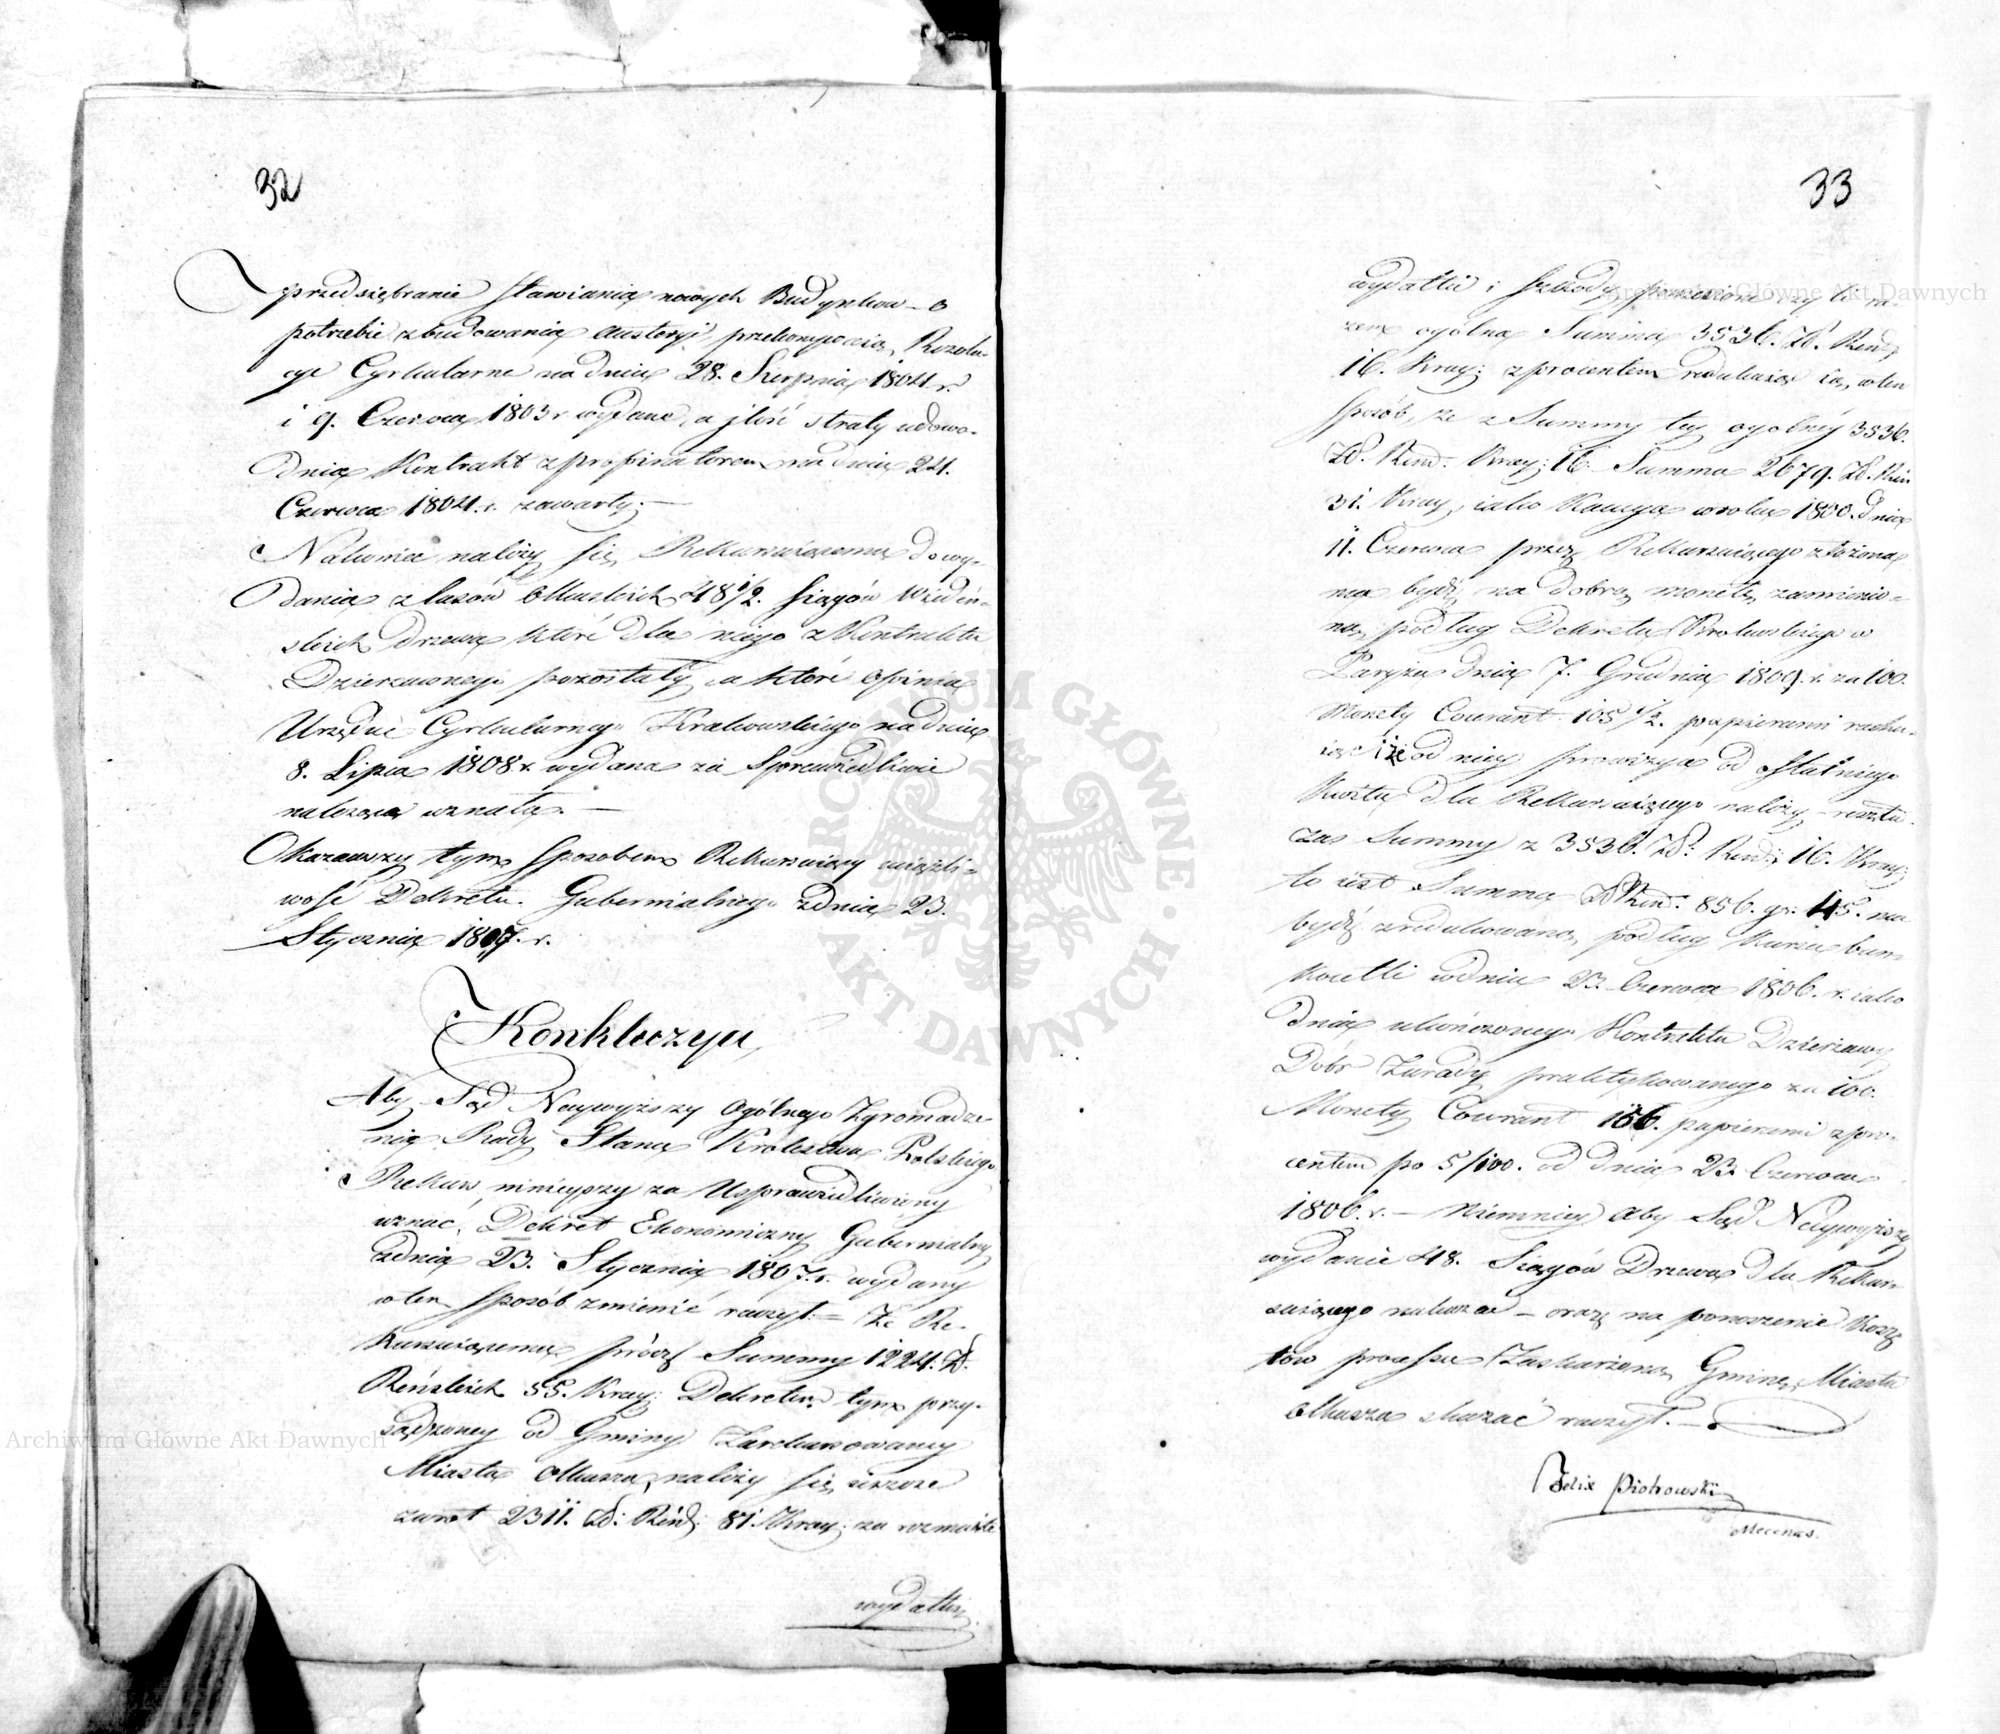 32
przedsiębranie stawiania nowych Budynków – o
potrzebie zbudowania Austeryi, przekonywaią Rezolu-
cye Cyrkularne na dniu 28. Sierpnia 1804 r.
i 9. Czerwca 1803 r wydane, a jlość straty udowo-
dnia Kontrakt z propinatorem na dniu 24.
Czerwca 1804. r. zawarty. —
Nakoniec należy się Rekurruiącemu do wy-
dania z lasów Olkuskich 48 1/2. siągów Wiedeń-
skich drzewa które dla niego z Kontraktu
Dzierzawnego pozostały, a które opinia
Urzędu Cyrkularnego Krakowskiego na dniu
8. Lipca 1808 r. wydana za Sprawiedliwie
należące uznała. —
Okazawszy tym sposobem Rekurruiący uciążli-
wość Dekretu Gubernialnego z dnia 23.
Stycznia 1807. r.
Konkluzya,
Aby Sąd Naywyższy Ogólnego Zgromadze
nia Rady Stanu Królestwa Polskiego
Rekurs ninieyszy za Usprawiedliwiony
uznać, Dekret Ekonomiczny Gubernialny
z dnia 23. Stycznia 1807. r. wydany
w ten sposób zmienić raczył. – Że Re-
kurruiącemu prócz Summy 1224. Zł.
Reńskich 55. Kray: Dekretem tym przy-
sądzoney od Gminy Zarekurowaney
Miasta Olkusza, należy się ieszcze
zwrot 2311. Zł: Reńs; 81. Kray; za rozmaite
wydatki
33
wydatki i szkody poniesione czyli ra-
zem ogólna Summa 3536. Zł. Reńs;
16. Kray; z procentem redukuiąc ią, w ten
sposób, że z Summy tey ogólney 3536.
Zł. Reńs: Kray; 16. Summa 2679. Zł. Reń
31. Kray, iako Kaucya w roku 1800. dnia
11. Czerwca przez Rekurruiącego złożona
ma bydź na dobrą monetę zamienio-
na, podług Dekretu Królewskiego w
Paryżu dnia 7. Grudnia 1809. r. za 100.
Monety Courant 105 1/2. papierami rachu-
iąc i że od niey prowizya od statniego
Kursu dla Rekurruiącego należy – resztu-
czas Summy z 3536. Zł. Reńs; 16. Kray;
to iest Summa Zł Reńs: 856. gr. 45. ma
bydź zredukowana, podług Kursu ban-
kocetli w dniu 23. Czerwca 1806. r. iako
dnia ukończonego Kontraktu Dzierżawy
Dóbr Żurady praktykowanego za 100.
Monety Courant 166. papierami z pro-
centem po 5/100. od dnia 23. Czerwca
1806. r. – Niemniey Aby Sąd Naywyższy
wydanie 48. Siągów Drzewa dla Rekur-
ruiącego nakazać – oraz na ponoszenie Kosz
tów processu Zaskarżoną Gminę Miasta
Olkusza skazać raczył. —
Felix Piotrowski
Mecenas.
Archiwum Główne Akt Dawnych
Archiwum Główne Akt Dawnych
ARCHIWUM GŁÓWNE AKT DAWNYCH